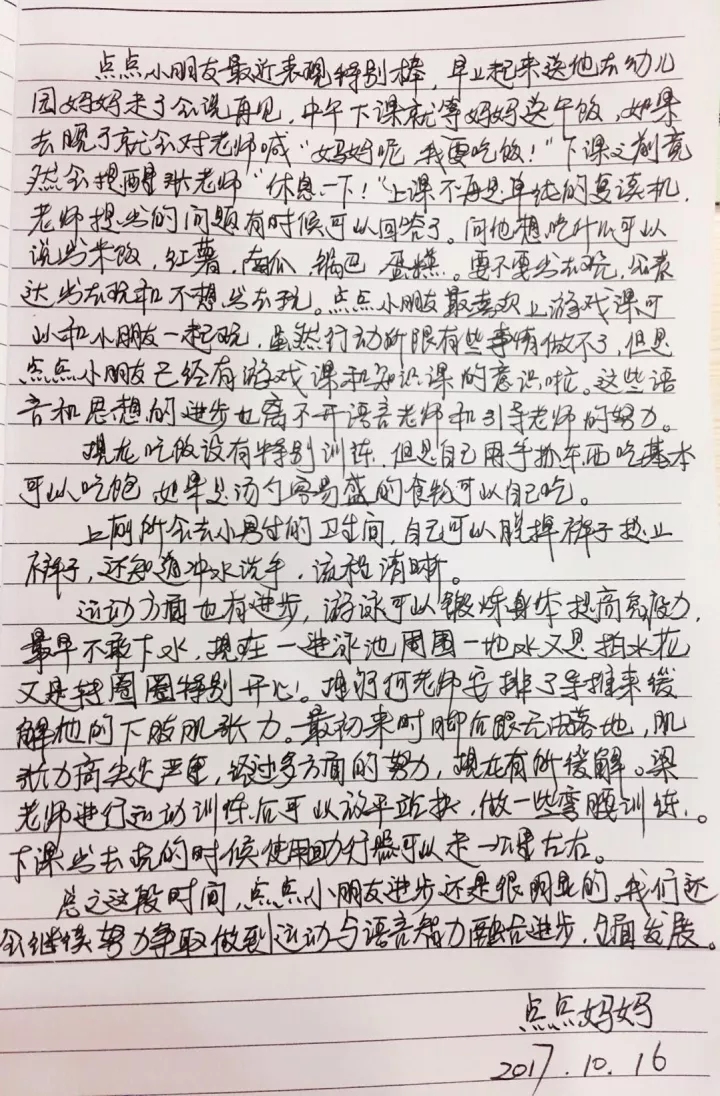 点点小朋友最近表现特别棒，早上起来送他去幼儿
园妈妈走了会说再见，中午下课就等妈妈送午饭，如果
去晚了就会对老师喊“妈妈呢，我要吃饭！”下课之前竟
然会提醒张老师“休息一下！”上课不再是单纯的复读机，
老师提出的问题有时候可以回答了。问他想吃什么可以
说出米饭，红薯，南瓜，锅巴，蛋糕。要不要出去玩，会表
达出去玩和不想出去玩。点点小朋友最喜欢上游戏课可
以和小朋友一起玩，虽然行动所限有些事情做不了，但是
点点小朋友已经有游戏课和知识课的意识啦。这些语
言和思想的进步也离不开语言老师和引导老师的努力。
现在吃饭没有特别训练，但是自己用手抓东西吃基本
可以吃饱，如果是汤勺容易盛的食物可以自己吃。
上厕所会去小男生的卫生间，自己可以脱掉裤子提上
裤子，还知道冲水洗手，流程清晰。
运动方面也有进步，游泳可以锻炼身体提高免疫力，
最早不敢下水，现在一进泳池周围一地水又是拍水花
又是转圈圈特别开心！推拿何老师安排了导推来缓
解他的下肢肌张力。最初来时脚后跟无法落地，肌
张力高尖足严重，经过多方面的努力，现在有所缓解。梁
老师进行运动训练后可以放平站执，做一些弯腰训练。
下课出去玩的时候使用助行器可以走一公里左右。
总之这段时间，点点小朋友进步还是很明显的，我们还
会继续努力争取做到运动与语言智力融合进步，全面发展。
点点妈妈
2017.10.16